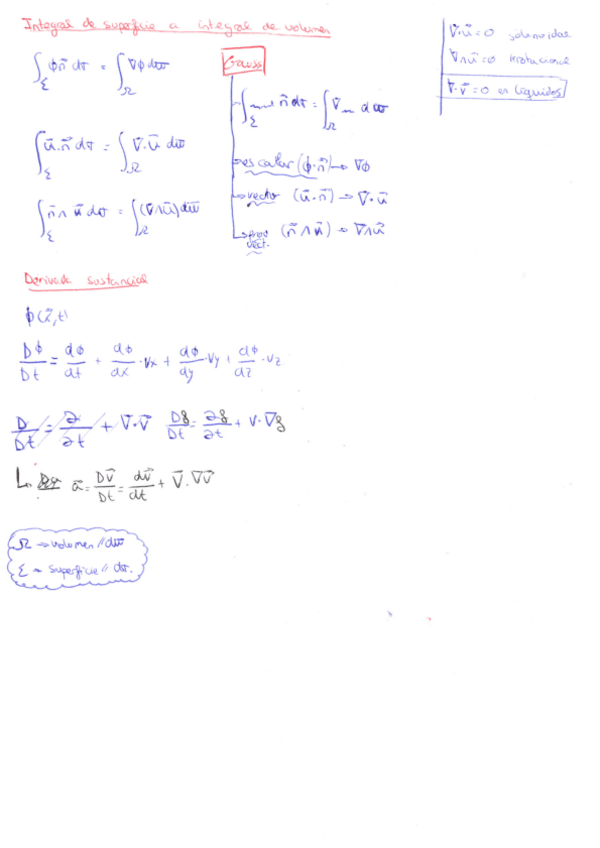 Integral de superficie a integral de volumen
∫_Σ ϕn⃗ dσ = ∫_Ω ∇ϕ dϖ
∫_Σ u⃗·n⃗ dσ = ∫_Ω ∇·u⃗ dϖ
∫_Σ n⃗∧u⃗ dσ = ∫_Ω (∇∧u⃗) dϖ
Gauss
∫_Σ n⃗ dσ = ∫_Ω ∇ dϖ
escalar (ϕ·n⃗) → ∇ϕ
vector (u⃗·n⃗) → ∇·u⃗
prod vect. (n⃗∧u⃗) → ∇∧u⃗
∇·u⃗=0 solenoidal
∇∧u⃗=0 irrotacional
∇·v⃗=0 en líquidos
Derivada sustancial
ϕ(x⃗,t)
Dϕ/Dt = dϕ/dt + dϕ/dx·vx + dϕ/dy·vy + dϕ/dz·vz
D/Dt = ∂/∂t + ∇·v⃗ Dg/Dt = ∂g/∂t + v·∇g
a⃗ = Dv⃗/Dt = dv⃗/dt + v⃗·∇v⃗
Ω → volumen // dϖ
Σ → superficie // dσ.